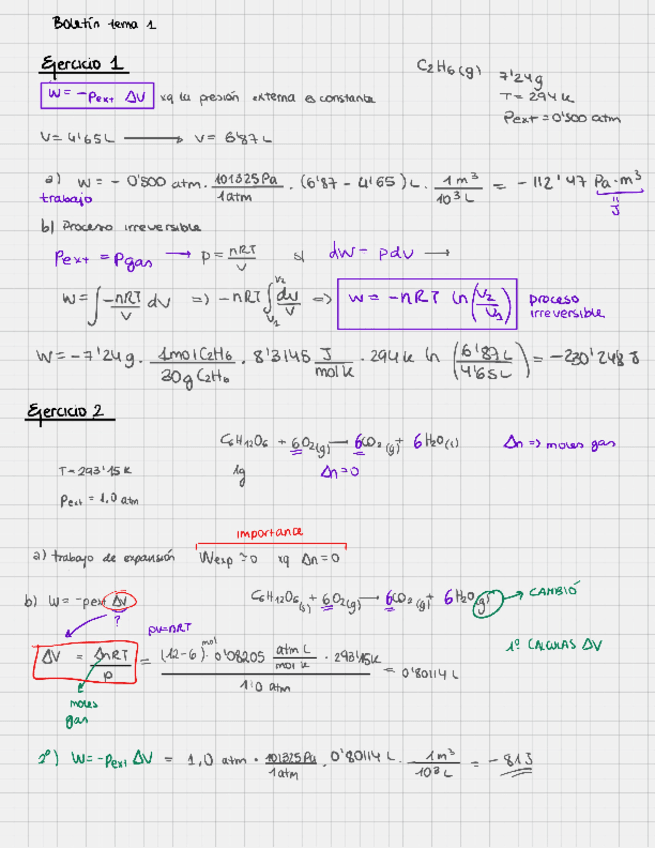 Boletín tema 1
Ejercicio 1
C2H6(g) 7'24g
T = 294 k
Pext = 0'500 atm
W = -Pext ΔV xq tu presión externa es constante
V = 4'65L ⟶ V = 6'87L
a) W = - 0'500 atm · 101325 Pa / 1 atm · (6'87 - 4'65) L · 1 m³ / 10³ L = - 112'47 Pa·m³
trabajo
J
b) Proceso irreversible
Pext = Pgas ⟶ p = nRT / V si dw = pdv ⟶
W = ∫ -nRT / V dv => -nRT ∫ V1 V2 dv / V => W = -nRT ln (V2 / V1) proceso irreversible
W = -7'24g · 1mol C2H6 / 30g C2H6 · 8'3145 J / mol k · 294k ln (6'87L / 4'65L) = -230'248 J
Ejercicio 2
C6H12O6 + 6O2(g) ⟶ 6CO2(g) + 6H2O(l) Δn => moles gas
T = 293'15 k
1g Δn = 0
Pext = 1,0 atm
importance
a) trabajo de expansión Wexp ≃ 0 xq Δn = 0
b) W = -pext ΔV C6H12O6(s) + 6O2(g) ⟶ 6CO2(g) + 6H2O(g) → CAMBIÓ
?
pv=nRT
1º CALCULAS ΔV
ΔV = ΔnRT / p = (12-6) mol · 0'08205 atm L / mol k · 293'15k / 1'0 atm = 0'80114 L
moles
gas
2º) W = -Pext ΔV = 1,0 atm · 101325 Pa / 1 atm · 0'80114 L · 1 m³ / 10³ L = - 81 J